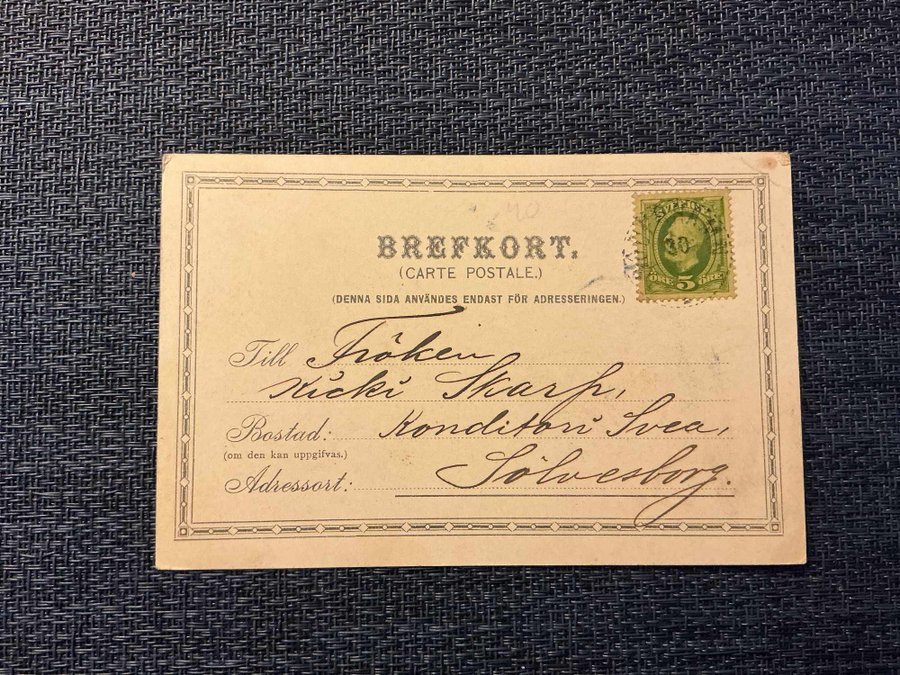 40
BREFKORT.
(CARTE POSTALE.)
(DENNA SIDA ANVÄNDES ENDAST FÖR ADRESSERINGEN.)
Till Fröken
Kicki Skarp,
Bostad: Konditori Svea,
(om den kan uppgifvas.)
Adressort: Sölvesborg.
SVERIGE
30
ÖRE 5 ÖRE